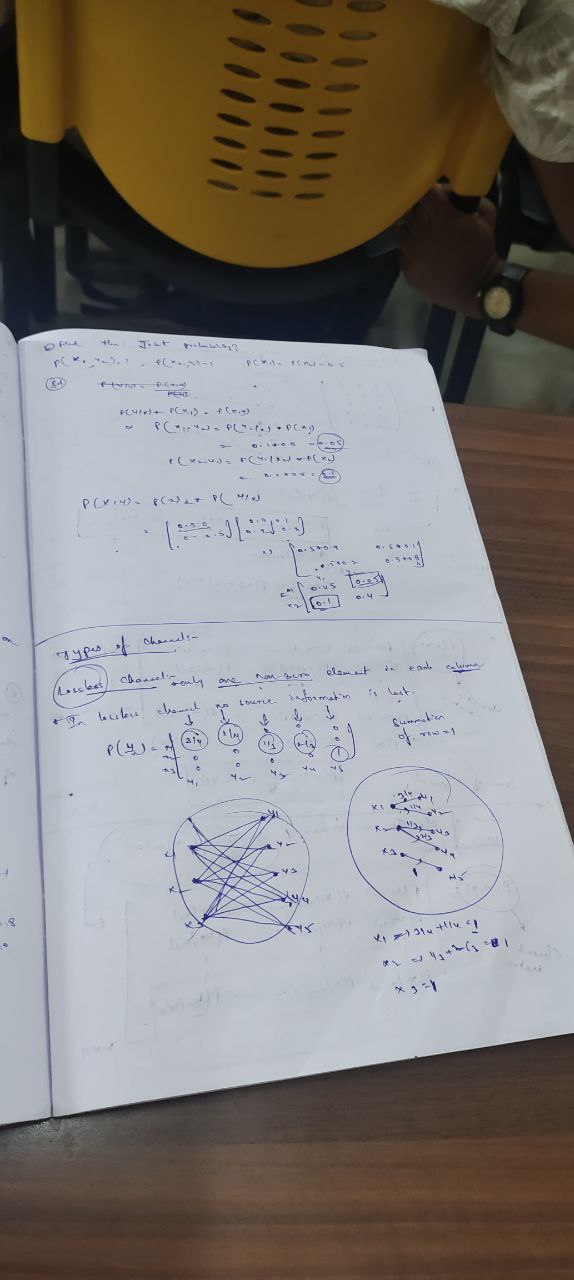 find the Joint probability?
P(x1, y2)=? , P(x2, y1)=? P(x1)= P(x2)= 0.5
Sol
P(y/x) * P(x) = P(x,y)
P(x1,y2) = P(y2/x1) * P(x1)
= 0.1*0.5 = 0.05
P(x2,y1) = P(y1/x2) * P(x2)
= 0.2*0.5 = 0.1
P(x,y) = P(x)d * P(y/x)
= [0.5 0
0 0.5] [0.9 0.1
0.2 0.8]
=> [0.5*0.9 0.5*0.1
0.5*0.2 0.5*0.8]
y1 y2
x1 [0.45 0.05
x2 0.1 0.4]
Types of channel:-
Lossless channel:- only one non zero element in each column
* In lossless channel no source information is lost.
P(y/x) = x1 [3/4 1/4 0 0 0
x2 0 0 1/3 2/3 0
x3 0 0 0 0 1]
y1 y2 y3 y4 y5
Summation
of row=1
x1 3/4 y1
1/4 y2
x2 1/3 y3
2/3 y4
x3 1 y5
y1
y2
x1 y3
x2 y4
x3 y5
x1 => 3/4+1/4 = 1
x2 => 1/3+2/3 = 1
x3 = 1